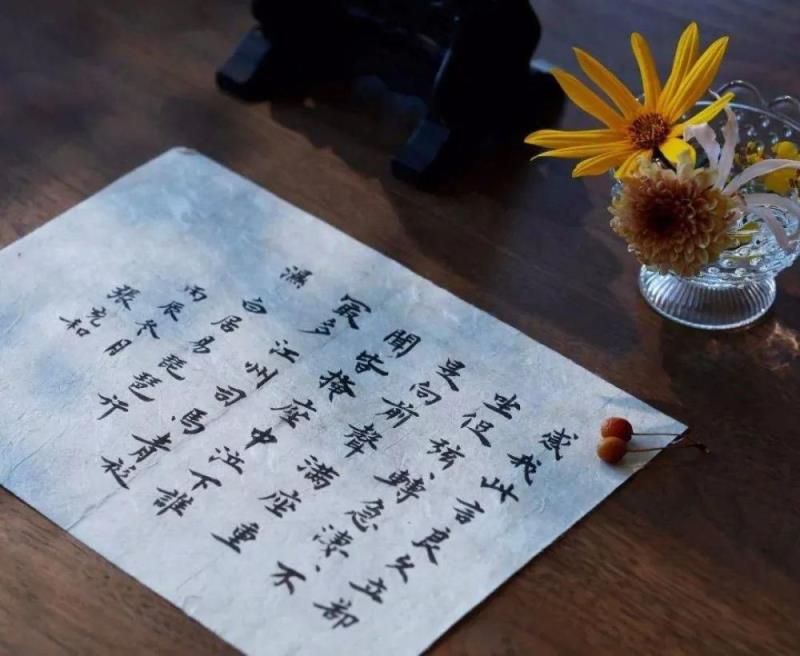 感我此言良久立却
坐促弦〻轉急淒〻不
似向前聲滿座重
聞皆掩座中泣下誰
最多江州司馬青衫
濕
白居易琵琶行
丙辰冬月
張充和